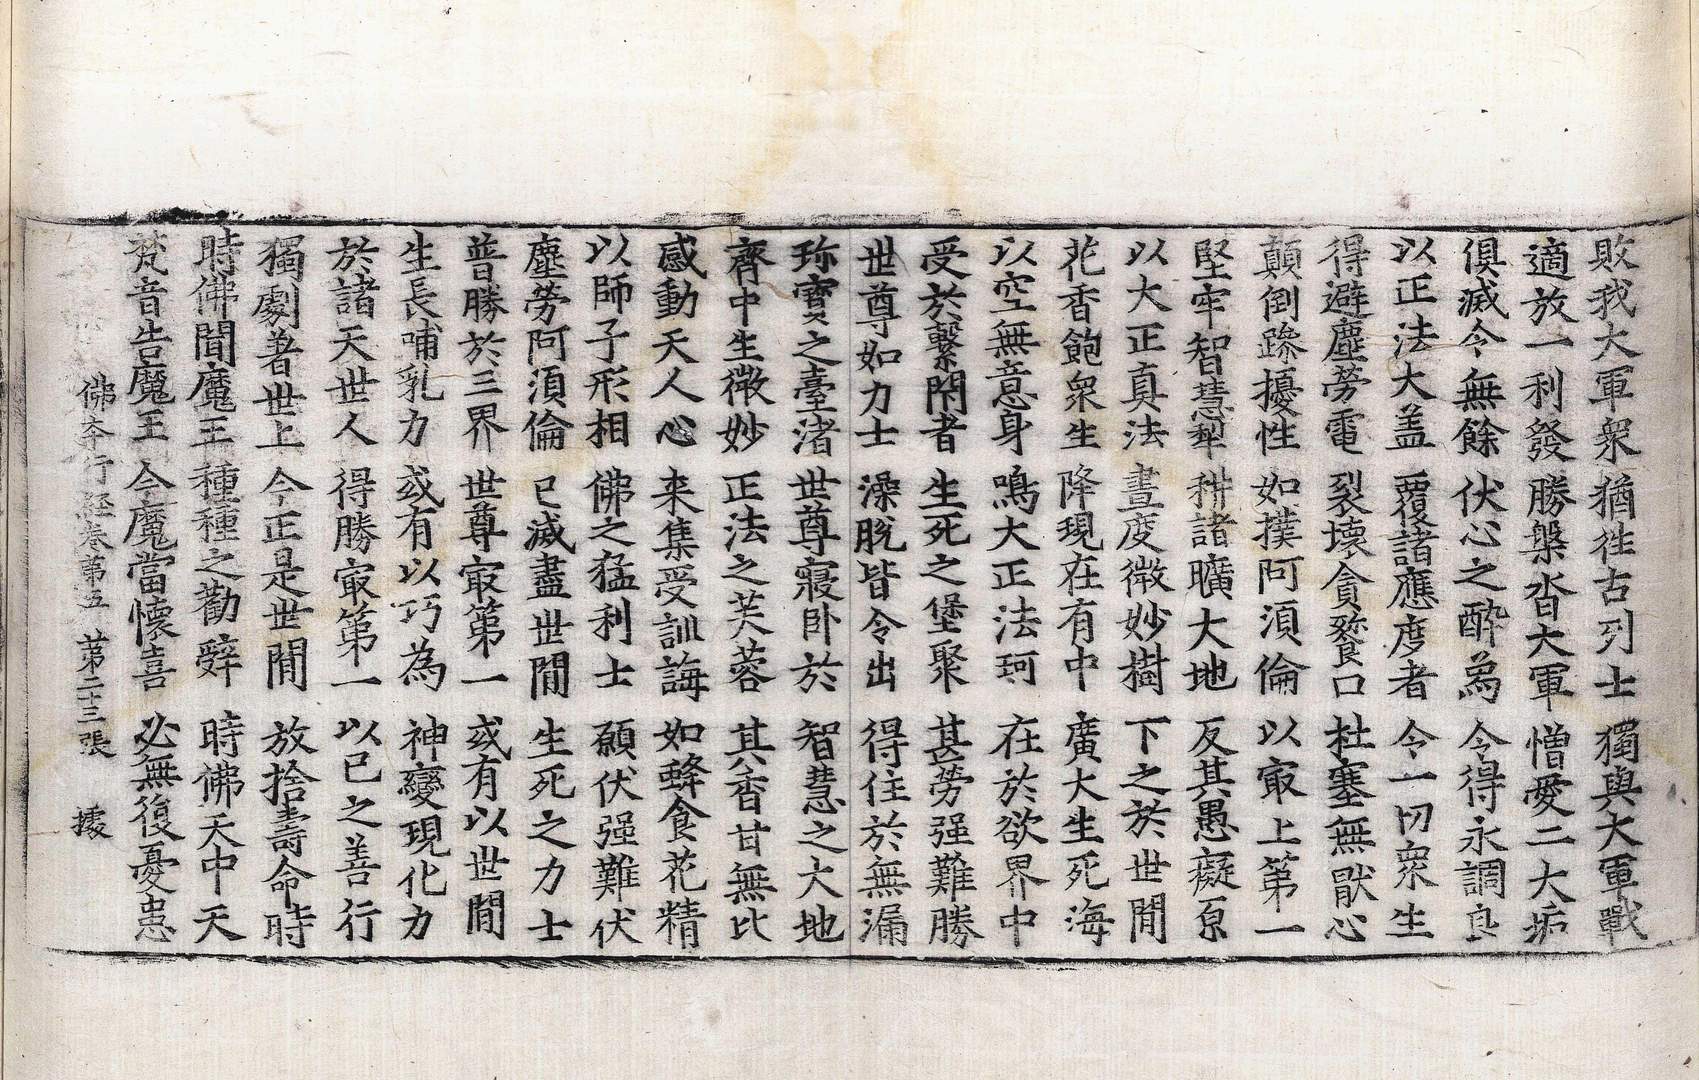 敗我大軍衆 猶往古列士 獨與大軍戰
適放一利發 勝槃沓大軍 憎愛二大垢
俱滅令無餘 伏心之酔為 令得永調良
以正法大盖 覆諸應度者 令一切衆生
得避塵勞電 裂壞貪餮口 杜塞無猒心
顛倒躁擾性 如撲阿須倫 以冣上第一
堅牢智慧犁 耕諸曠大地 反其愚癡原
以大正真法 晝度微妙樹 下之於世間
花香飽衆生 降現在有中 廣大生死海
以空無意身 鳴大正法珂 在於欲界中
受於繫閇者 生死之堡聚 甚勞强難勝
世尊如力士 澡脫皆令出 得住於無漏
珎寶之臺渚 世尊寢卧於 智慧之大地
齊中生微妙 正法之芙蓉 其香甘無比
感動天人心 来集受訓誨 如蜂食花精
以師子形相 佛之猛利士 願伏强難伏
塵勞阿須倫 已滅盡世間 生死之力士
普勝於三界 世尊冣第一 或有以世間
生長哺乳力 或有以巧為 神變現化力
於諸天世人 得勝冣第一 以已之善行
獨劇著世上 今正是世間 放捨壽命時
時佛聞魔王 種種之勸辤 時佛天中天
梵音告魔王 今魔當懷喜 必無復憂患
佛本行経卷第五 第二十三張 據